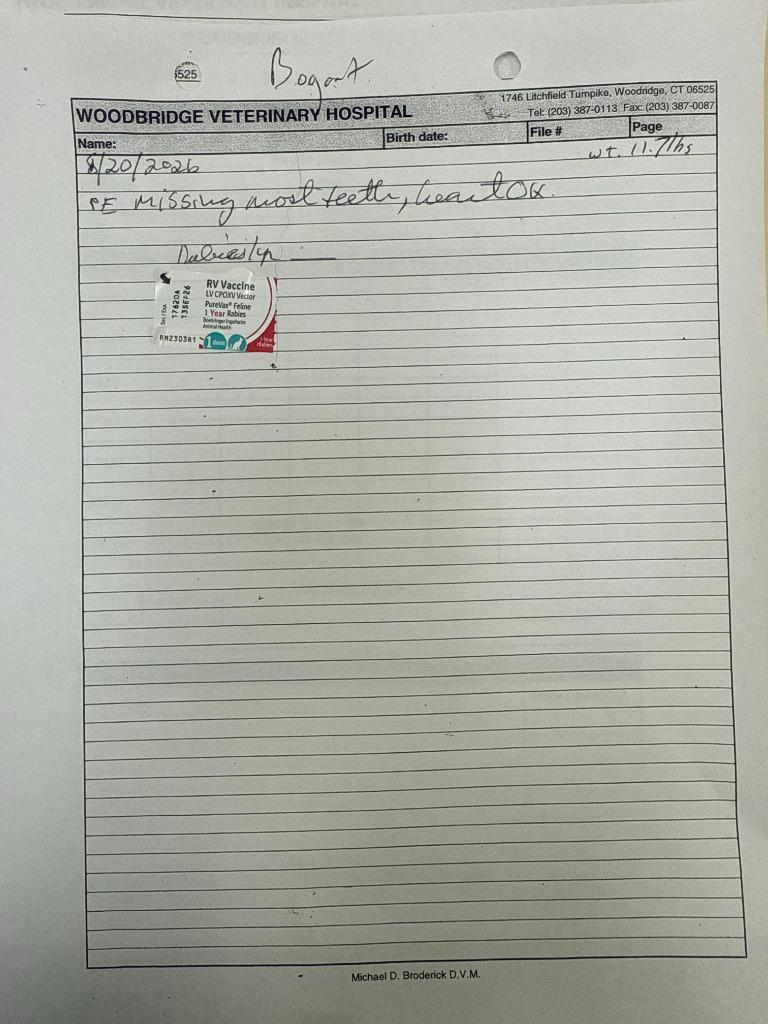 6525
Bogart.
1746 Litchfield Turnpike, Woodridge, CT 06525
WOODBRIDGE VETERINARY HOSPITAL
Tel: (203) 387-0113 Fax: (203) 387-0087
Name:
Birth date:
File #
Page
8/20/2026
wt. 11.7 lbs
PE Missing most teeth, heart OK.
Rabies 1yr
RV Vaccine
LV CPOXV Vector
PureVax® Feline
1 Year Rabies
Boehringer Ingelheim
Animal Health
Ser./Exp.
17620A
13SEP26
RM2303R1
1 dose
1-Year
Rabies
Michael D. Broderick D.V.M.